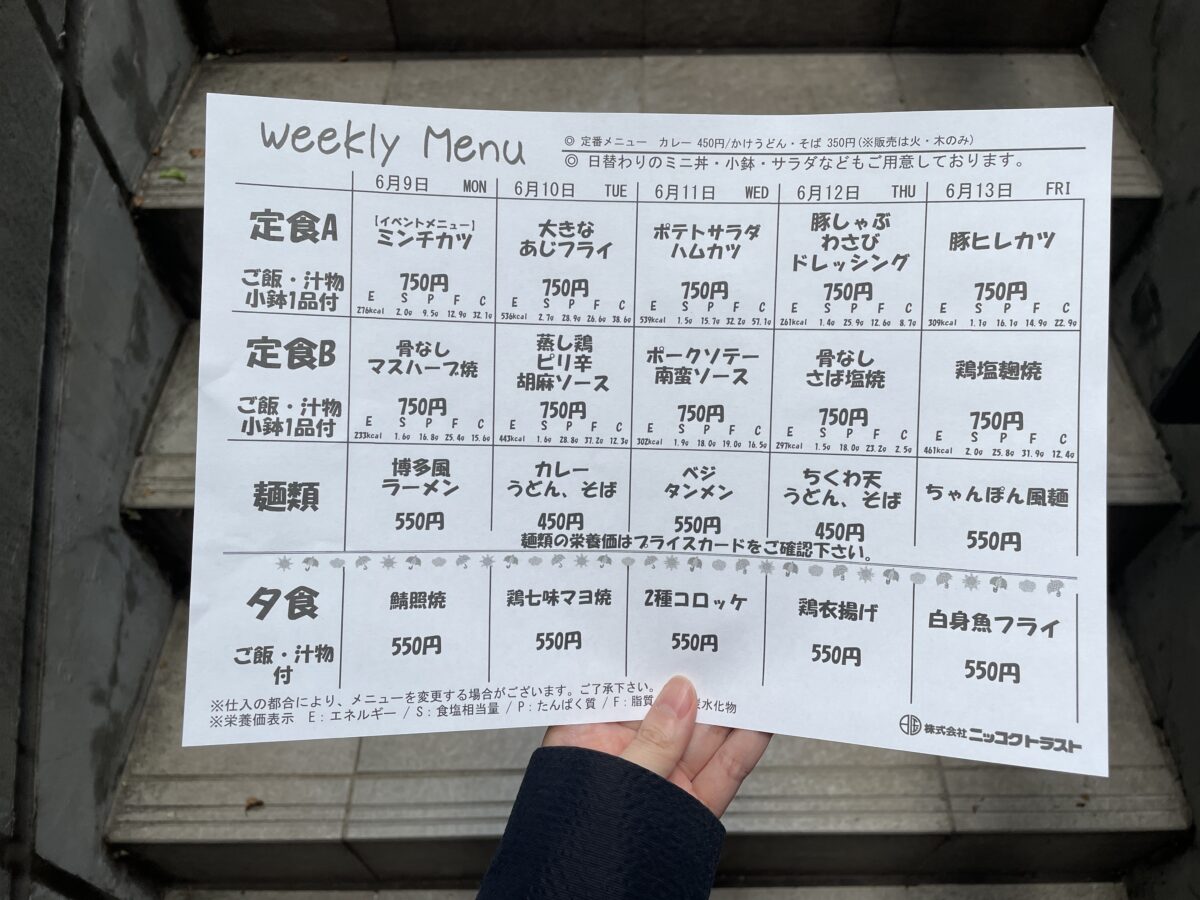 Weekly Menu
◎ 定番メニュー カレー 450円/かけうどん・そば 350円(※販売は火・木のみ)
◎ 日替わりのミニ丼・小鉢・サラダなどもご用意しております。
6月9日 MON 6月10日 TUE 6月11日 WED 6月12日 THU 6月13日 FRI
定食A
ご飯・汁物
小鉢1品付
【イベントメニュー】
ミンチカツ
750円
E S P F C
276kcal 2.0g 9.5g 12.9g 32.1g
大きな
あじフライ
750円
E S P F C
536kcal 2.7g 28.9g 26.6g 38.6g
ポテトサラダ
ハムカツ
750円
E S P F C
539kcal 1.5g 15.7g 32.2g 57.1g
豚しゃぶ
わさび
ドレッシング
750円
E S P F C
261kcal 1.4g 25.9g 12.6g 8.7g
豚ヒレカツ
750円
E S P F C
309kcal 1.1g 16.1g 14.9g 22.9g
定食B
ご飯・汁物
小鉢1品付
骨なし
マスハーブ焼
750円
E S P F C
233kcal 1.6g 16.8g 25.4g 15.6g
蒸し鶏
ピリ辛
胡麻ソース
750円
E S P F C
443kcal 1.6g 28.8g 37.2g 12.3g
ポークソテー
南蛮ソース
750円
E S P F C
302kcal 1.9g 18.0g 19.0g 16.5g
骨なし
さば塩焼
750円
E S P F C
297kcal 1.5g 18.0g 23.2g 2.5g
鶏塩麹焼
750円
E S P F C
461kcal 2.0g 25.8g 31.9g 12.4g
麺類
博多風
ラーメン
550円
カレー
うどん、そば
450円
ベジ
タンメン
550円
ちくわ天
うどん、そば
450円
ちゃんぽん風麺
550円
麺類の栄養価はプライスカードをご確認下さい。
夕食
ご飯・汁物
付
鯖照焼
550円
鶏七味マヨ焼
550円
2種コロッケ
550円
鶏衣揚げ
550円
白身魚フライ
550円
※仕入の都合により、メニューを変更する場合がございます。ご了承下さい。
※栄養価表示 E:エネルギー / S:食塩相当量 / P:たんぱく質 / F:脂質 水化物
株式会社 ニッコクトラスト